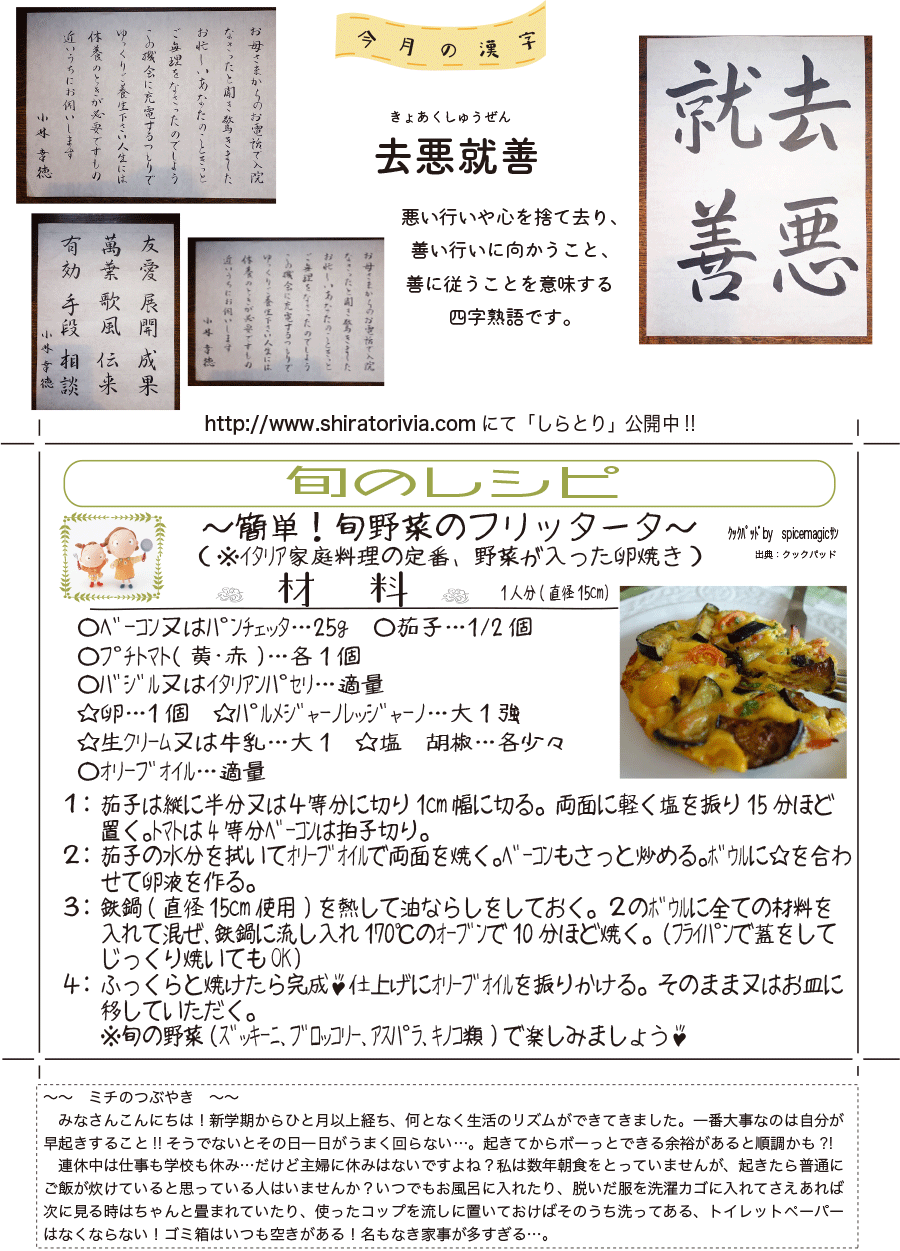 今月の漢字
お母さまからのお電話で入院
なさったと聞き驚きました
お忙しいあなたのこときっと
ご無理をなさったのでしょう
この機会に充電するつもりで
ゆっくりご養生下さい人生には
休養のときが必要ですもの
近いうちにお伺いします
小林幸徳
友愛 展開 成果
萬葉 歌風 伝来
有効 手段 相談
小林幸徳
お母さまからのお電話で入院
なさったと聞き驚きました
お忙しいあなたのこときっと
ご無理をなさったのでしょう
この機会に充電するつもりで
ゆっくりご養生下さい人生には
休養のときが必要ですもの
近いうちにお伺いします
きょあくしゅうぜん
去悪就善
悪い行いや心を捨て去り、
善い行いに向かうこと、
善に従うことを意味する
四字熟語です。
去悪
就善
http://www.shiratorivia.com にて「しらとり」公開中!!
旬のレシピ
～簡単！旬野菜のフリッタータ～
(※ｲﾀﾘｱ家庭料理の定番、野菜が入った卵焼き)
ｸｯｸﾊﾟｯﾄﾞby spicemagicｻﾝ
出典：クックパッド
材 料
1人分(直径15cm)
○ﾍﾞｰｺﾝ又はﾊﾟﾝﾁｪｯﾀ…25g ○茄子…1/2個
○ﾌﾟﾁﾄﾏﾄ(黄･赤)…各1個
○ﾊﾞｼﾞﾙ又はｲﾀﾘｱﾝﾊﾟｾﾘ…適量
☆卵…1個 ☆ﾊﾟﾙﾒｼﾞｬｰﾉﾚｯｼﾞｬｰﾉ…大1強
☆生ｸﾘｰﾑ又は牛乳…大1 ☆塩 胡椒…各少々
○ｵﾘｰﾌﾞｵｲﾙ…適量
1：茄子は縦に半分又は4等分に切り1cm幅に切る。両面に軽く塩を振り15分ほど
置く。ﾄﾏﾄは4等分ﾍﾞｰｺﾝは拍子切り。
2：茄子の水分を拭いてｵﾘｰﾌﾞｵｲﾙで両面を焼く。ﾍﾞｰｺﾝもさっと炒める。ﾎﾞｳﾙに☆を合わ
せて卵液を作る。
3：鉄鍋(直径15cm使用)を熱して油ならしをしておく。2のﾎﾞｳﾙに全ての材料を
入れて混ぜ、鉄鍋に流し入れ170℃のｵｰﾌﾞﾝで10分ほど焼く。(ﾌﾗｲﾊﾟﾝで蓋をして
じっくり焼いてもOK)
4：ふっくらと焼けたら完成♥仕上げにｵﾘｰﾌﾞｵｲﾙを振りかける。そのまま又はお皿に
移していただく。
※旬の野菜(ｽﾞｯｷｰﾆ、ﾌﾞﾛｯｺﾘｰ、ｱｽﾊﾟﾗ、ｷﾉｺ類)で楽しみましょう♥
～～ ミチのつぶやき ～～
みなさんこんにちは！新学期からひと月以上経ち、何となく生活のリズムができてきました。一番大事なのは自分が
早起きすること!!そうでないとその日一日がうまく回らない…。起きてからボーっとできる余裕があると順調かも?!
連休中は仕事も学校も休み…だけど主婦に休みはないですよね？私は数年朝食をとっていませんが、起きたら普通に
ご飯が炊けていると思っている人はいませんか？いつでもお風呂に入れたり、脱いだ服を洗濯カゴに入れてさえあれば
次に見る時はちゃんと畳まれていたり、使ったコップを流しに置いておけばそのうち洗ってある、トイレットペーパー
はなくならない！ゴミ箱はいつも空きがある！名もなき家事が多すぎる…。